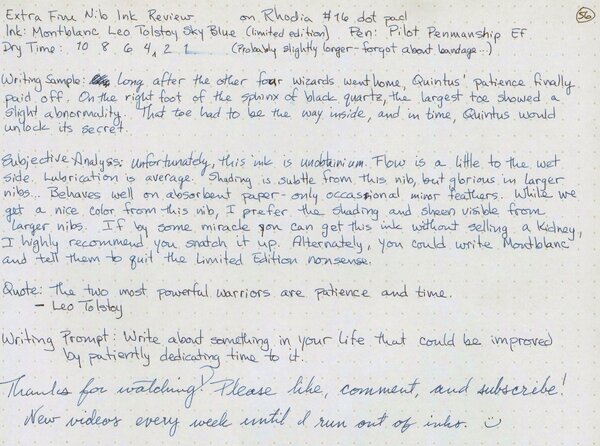 Extra Fine Nib Ink Review on Rhodia #16 dot pad 56
Ink: Montblanc Leo Tolstoy Sky Blue (limited edition) Pen: Pilot Penmanship EF
Dry Time: 10 8 6 4 2 1 (Probably slightly longer - forgot about bandage...)
Writing Sample: Long after the other four wizards went home, Quintus' patience finally
paid off. On the right foot of the sphinx of black quartz, the largest toe showed a
slight abnormality. That toe had to be the way inside, and in time, Quintus would
unlock its secret.
Subjective Analysis: Unfortunately, this ink is unobtainium. Flow is a little to the wet
side. Lubrication is average. Shading is subtle from this nib, but glorious in larger
nibs... Behaves well on absorbent paper - only occasional minor feathers. While we
get a nice color from this nib, I prefer the shading and sheen visible from
larger nibs. If by some miracle you can get this ink without selling a kidney,
I highly recommend you snatch it up. Alternately, you could write Montblanc
and tell them to quit the Limited Edition nonsense.
Quote: The two most powerful warriors are patience and time.
- Leo Tolstoy
Writing Prompt: Write about something in your life that could be improved
by patiently dedicating time to it.
Thanks for watching! Please like, comment, and subscribe!
New videos every week until I run out of inks.